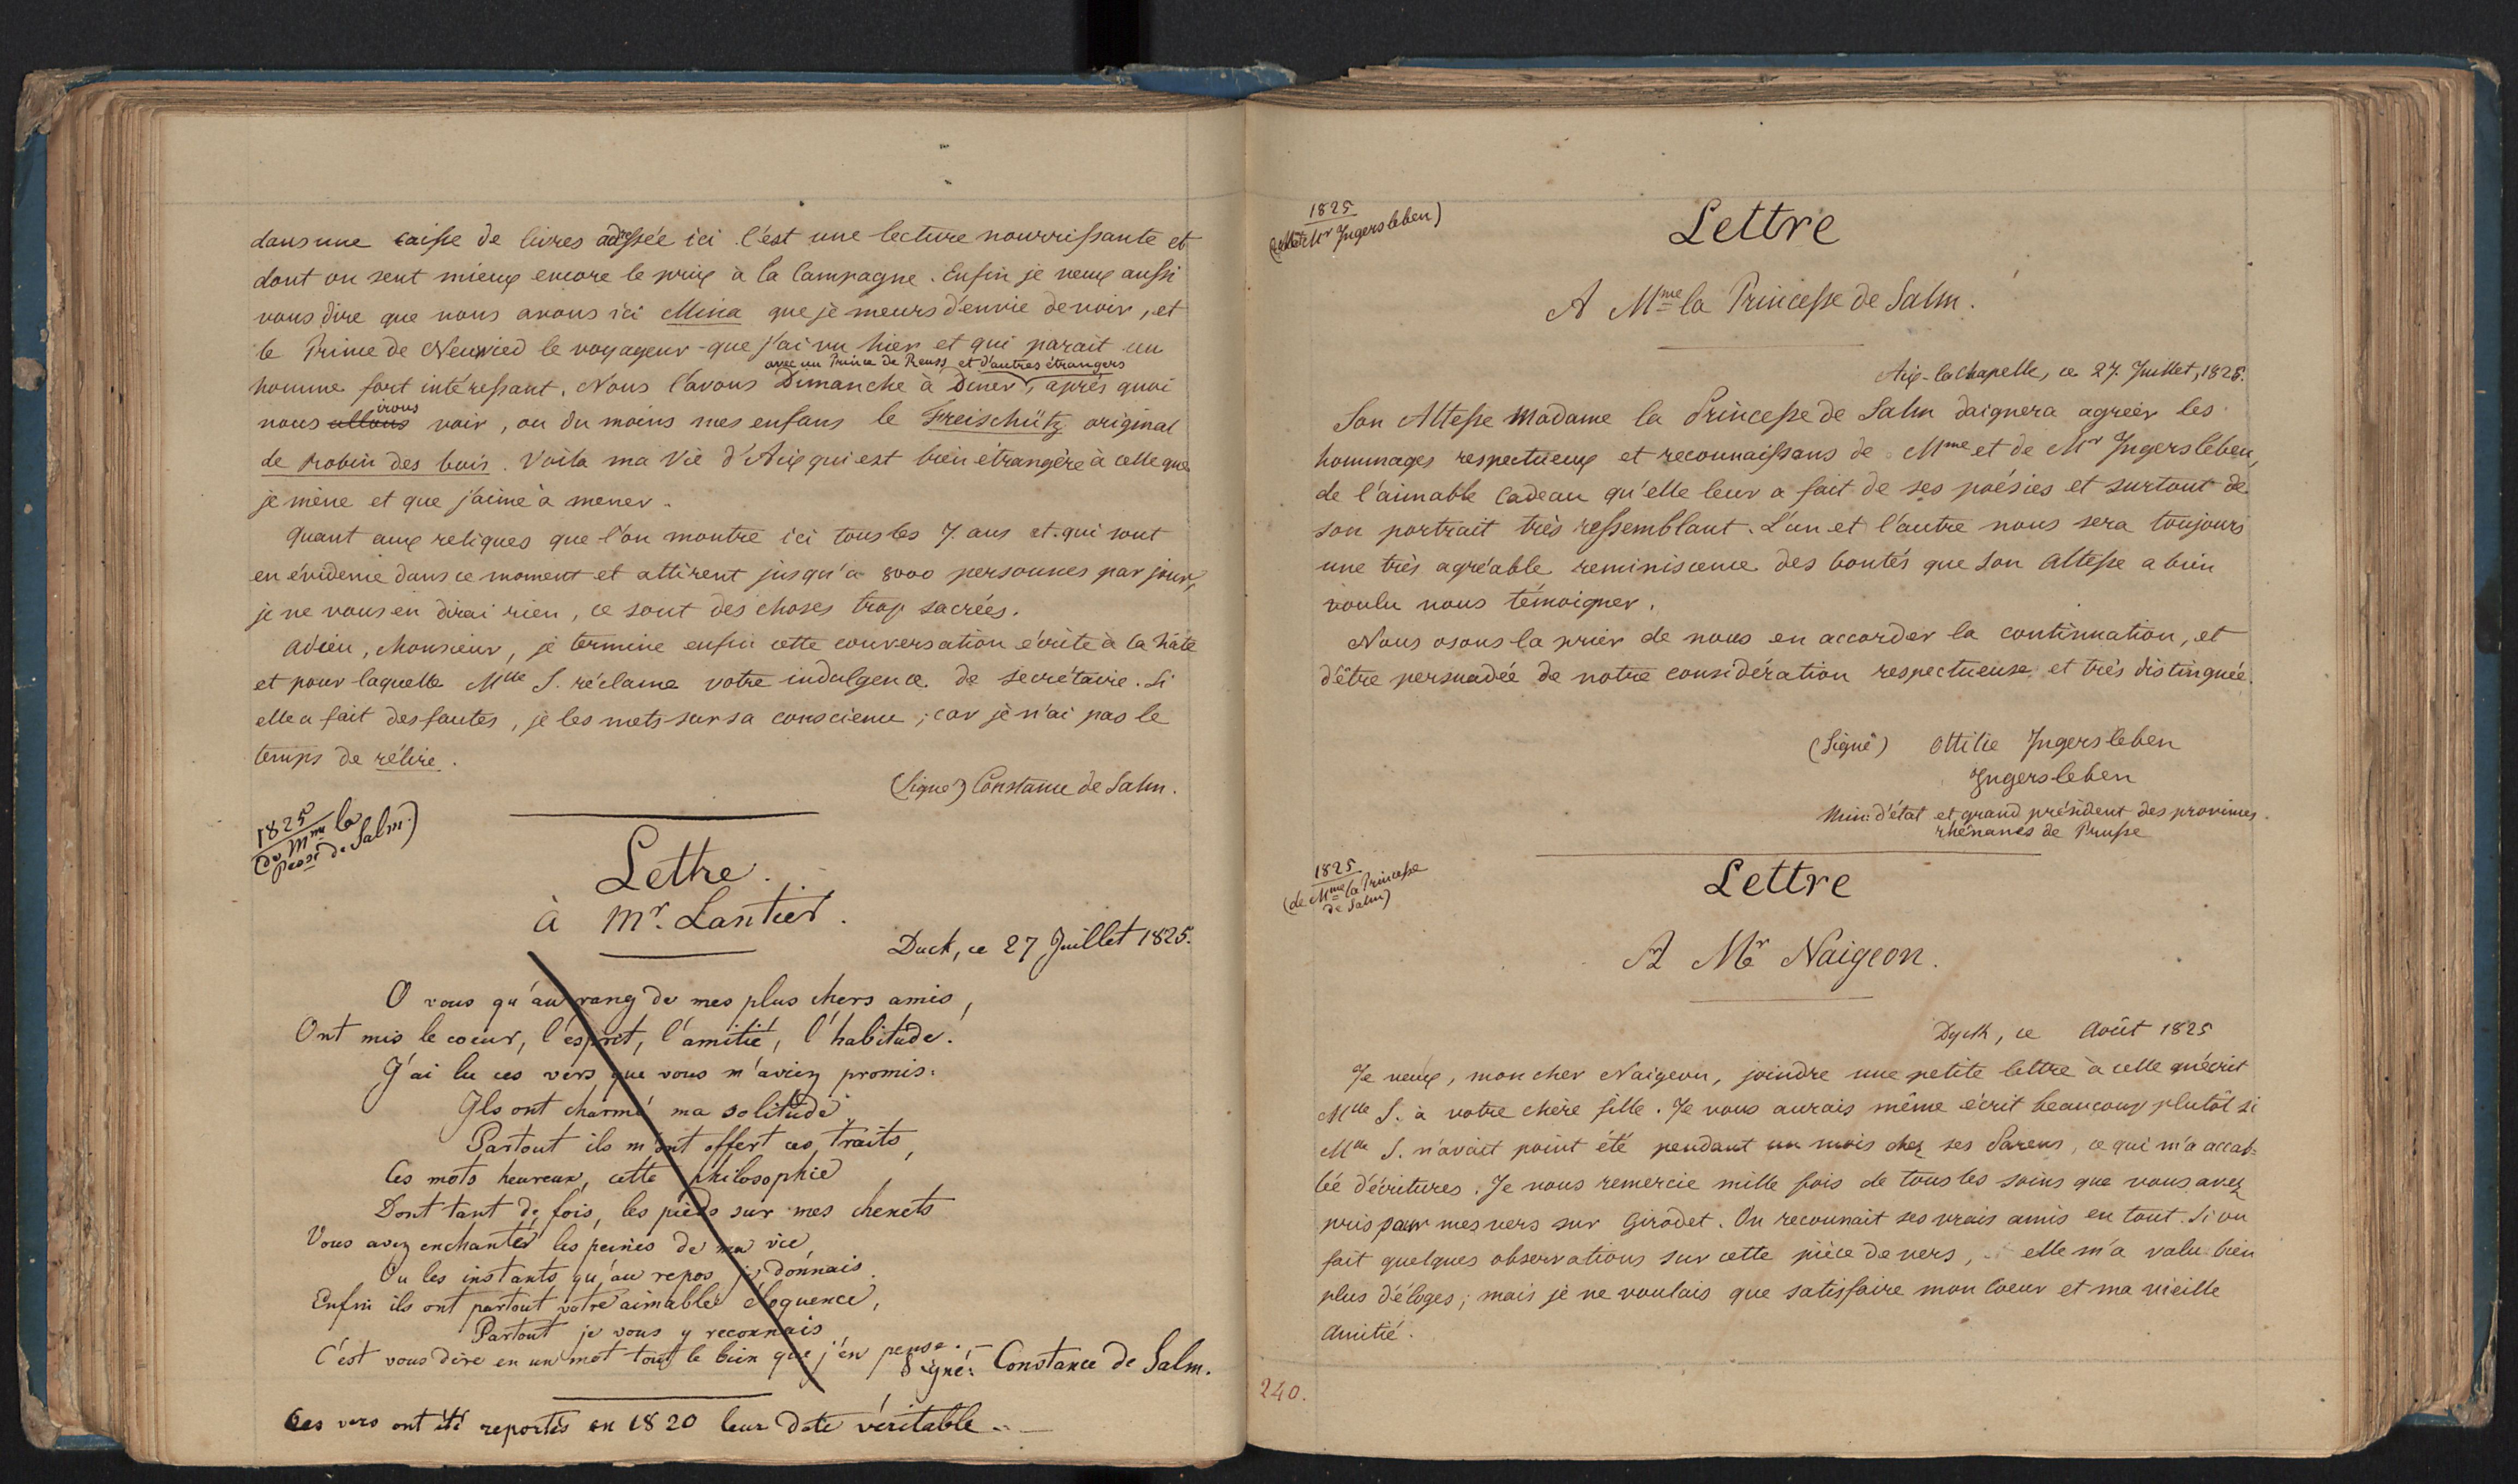 dans une caisse de livres adressée ici. C'est une lecture nourrissante et
dont on sent mieux encore le prix à la Campagne. Enfin je veux aussi
vous dire que nous avons ici Mina que je meurs d'envie de voir, et
le Prince de Neuwied le voyageur que j'ai vu hier et qui parait un
avec un Prince de Reuss et d'autres étrangers
homme fort intéressant. Nous l'avons Dimanche à Diner, après quoi
irons
nous allons voir, ou du moins mes enfans le Freischütz original
de Robin des bois. Voila ma Vie d'Aix qui est bien étrangère à celle que
je mène et que j'aime à mener.
Quant aux reliques que l'on montre ici tous les 7. ans et qui sont
en évidence dans ce moment et attirent jusqu'a 8000 personnes par jour,
je ne vous en dirai rien, ce sont des choses trop sacrées.
Adieu, Monsieur, je termine enfin cette conversation écrite à la hâte
et pour laquelle Mlle S. réclame votre indulgence de secrétaire. Si
elle a fait des fautes, je les mets sur sa conscience; car je n'ai pas le
temps de rélire.
(Signé) Constance de Salm.
1825
(de Mme la
Pcesse de Salm.)
Lettre.
à Mr. Lantier.
Dyck, ce 27 Juillet 1825.
O vous qu'au rang de mes plus chers amis,
Ont mis le coeur, l'esprit, l'amitié, l'habitude.
J'ai lu ces vers que vous m'aviez promis:
Ils ont charmé ma solitude,
Partout ils m'ont offert ces traits,
Ces mots heureux, cette philosophie
Dont tant de fois, les pieds sur mes chenets
Vous avez enchanter les peines de ma vie,
Ou les instants qu'au repos je donnais.
Enfin ils ont partout votre aimable éloquence,
Partout je vous y reconnais
C'est vous dire en un mot tout le bien que j'en pense.
Signé: Constance de Salm.
Ces vers ont été reportés en 1820 leur date véritable.
1825
Mr Ingersleben)
Lettre
A Mme la Princesse de Salm.
Aix-la chapelle, ce 27. Juillet, 1825.
Son Altesse Madame la Princesse de Salm daignera agréer les
hommages respectueux et reconnaissans de Mme et de Mr Ingersleben,
de l'aimable Cadeau qu'elle leur a fait de ses poésies et surtout de
son portrait très ressemblant. L'un et l'autre nous sera toujours
une très agréable reminiscence des bontés que Son Altesse a bien
voulu nous témoigner.
Nous osons la prier de nous en accorder la continuation, et
d'être persuadée de notre considération respectueuse et très distinguée.
(Signé) Ottilie Ingersleben
Ingersleben
Min: d'état et grand président des provinces
rhénanes de Prusse
1825
(de Mme la Princesse
de Salm)
Lettre
A Mr Naigeon.
Dyck, ce Août 1825
Je veux, mon cher Naigeon, joindre une petite lettre à celle qu'écrit
Mlle S. à votre chère fille. Je vous aurais même écrit beaucoup plutôt si
Mlle S. n'avait point été pendant un mois chez ses Parens, ce qui m'a accab=
lée d'écritures. Je vous remercie mille fois de tous les soins que vous avez
pris pour mes vers sur Girodet. On reconnait ses vrais amis en tout. Si on
fait quelques observations sur cette pièce de vers, elle m'a valu bien
plus d'éloges; mais je ne voulais que satisfaire mon Coeur et ma vieille
Amitié.
240.